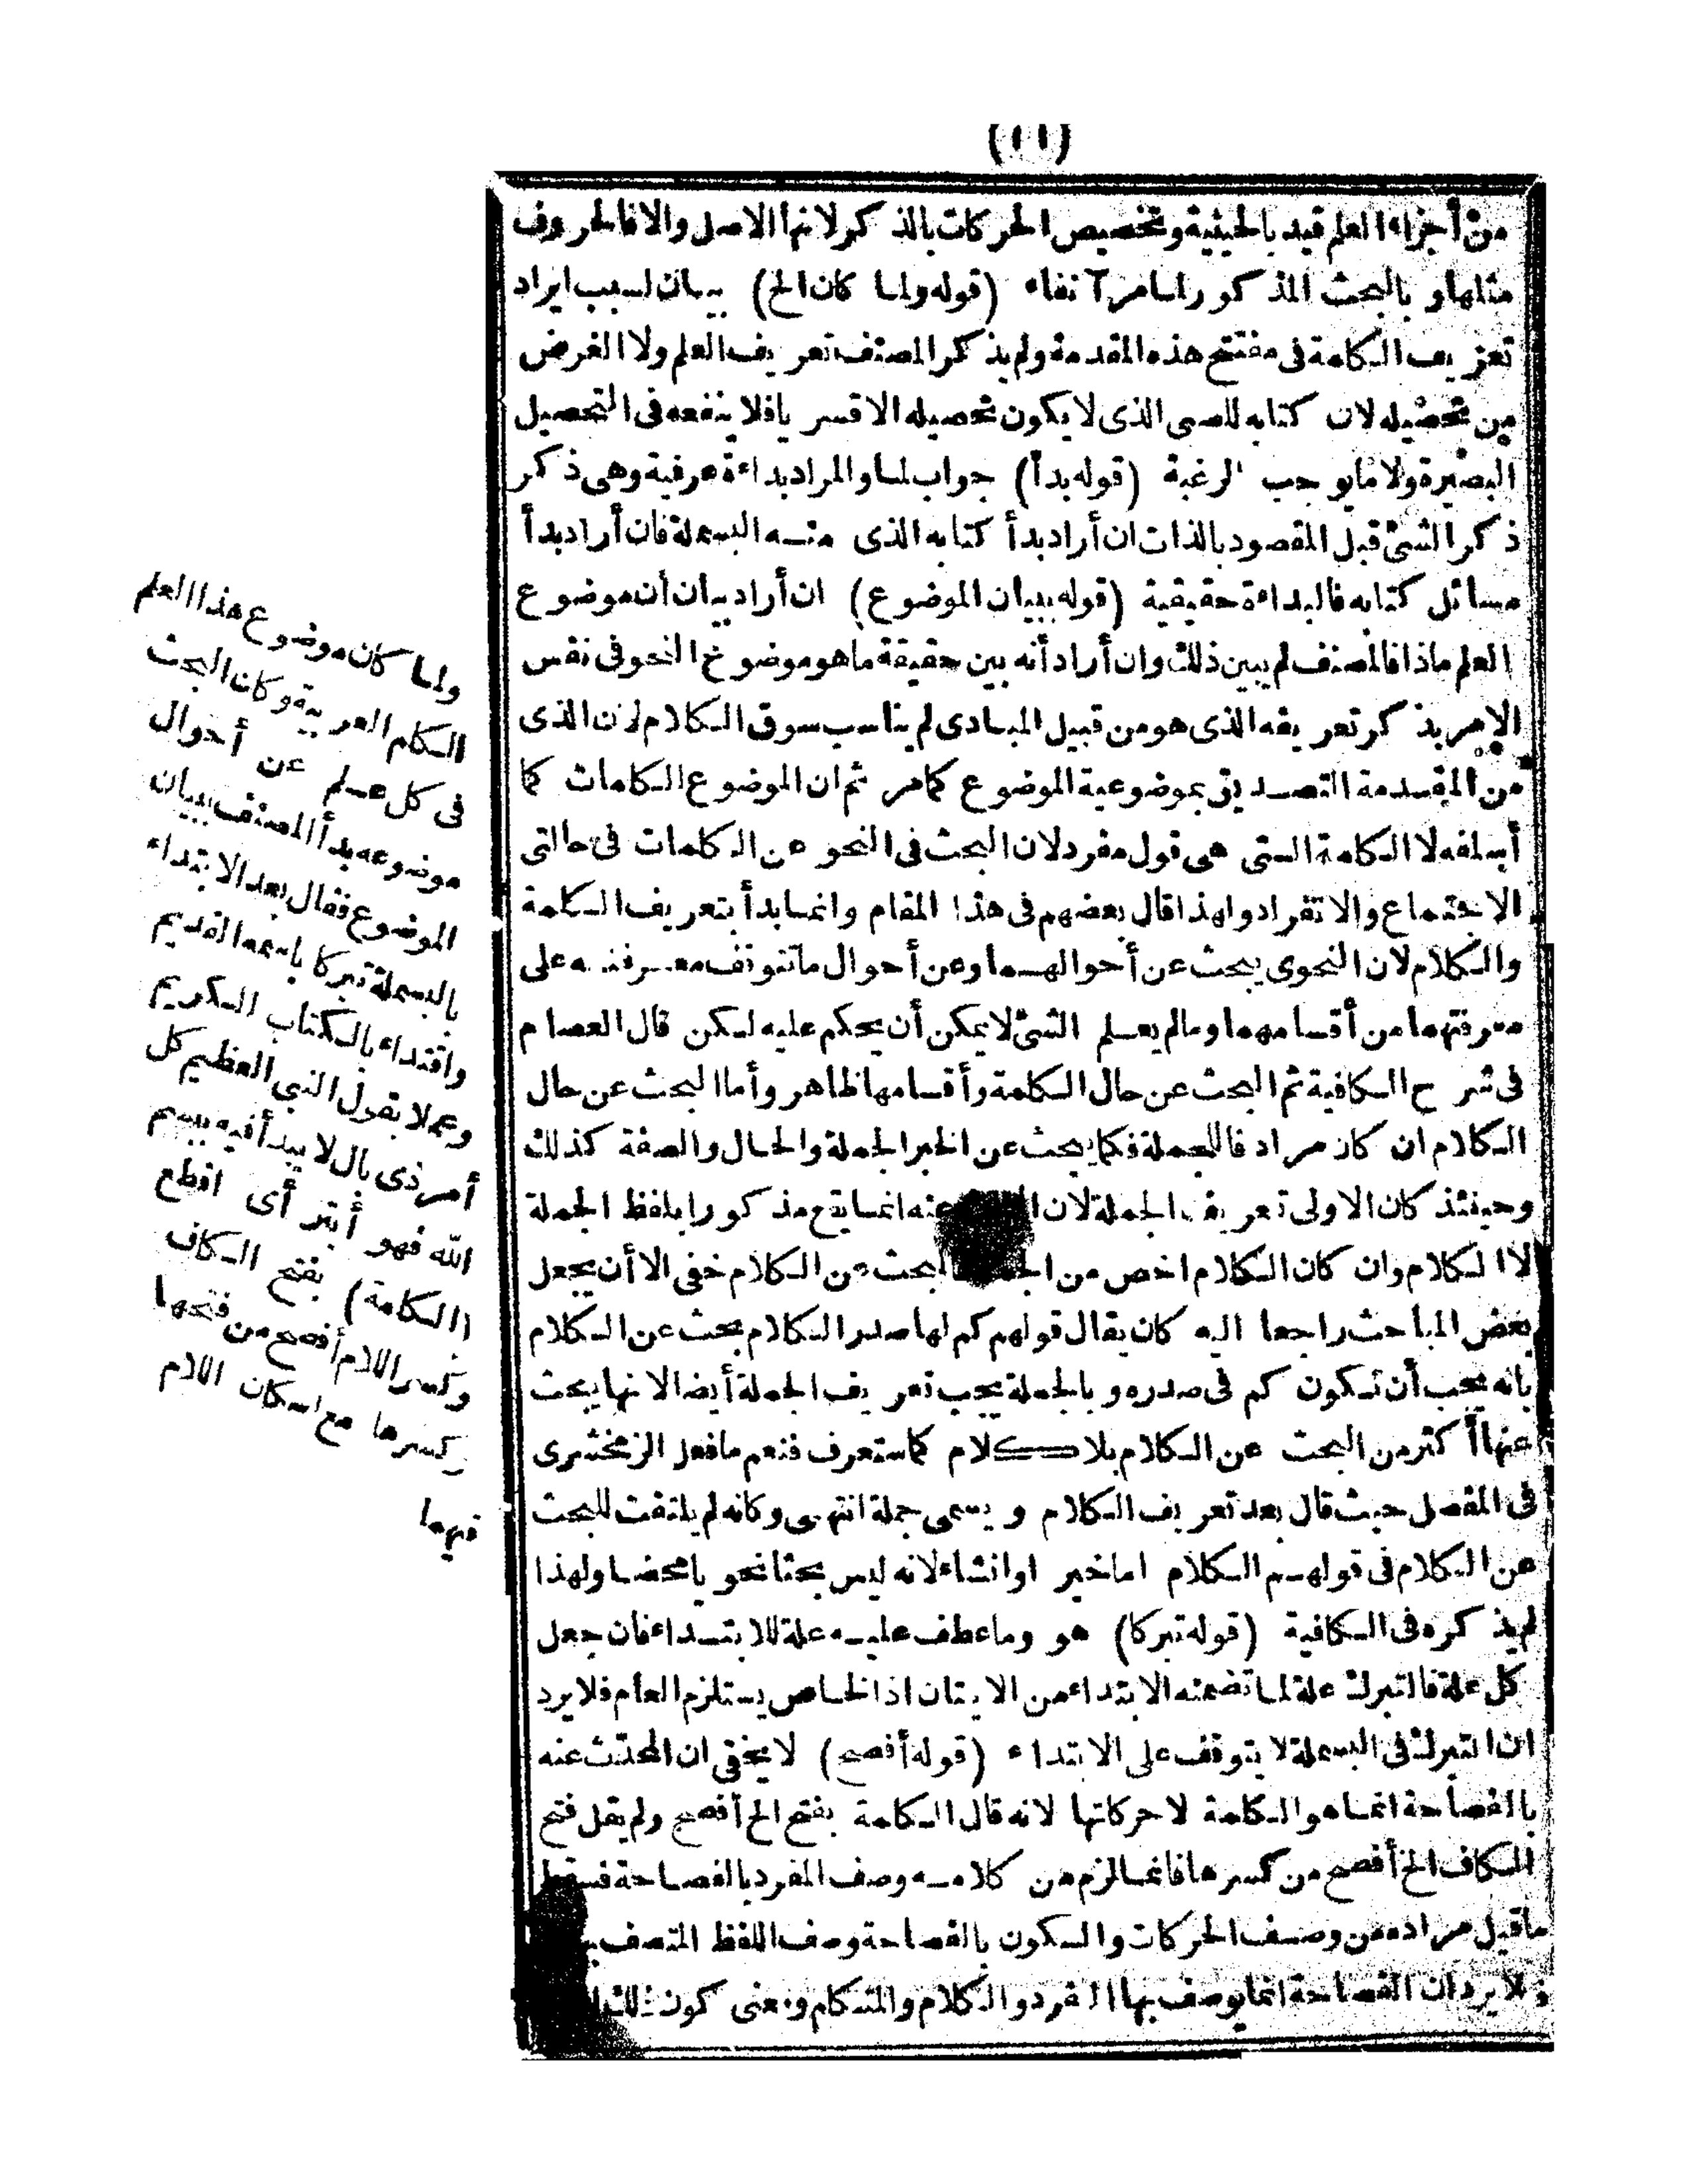 (١١)
من أجزاء العلم قيد بالحيثية وتخصيص الحركات بالذكر لانها الاصل والا فالحروف
مثلها وبالبحث المذكور راسا مر آنفاء (قوله ولما كان الخ) بيان لسبب ايراد
تعريف الكلمة فى مفتتح هذه المقدمة ولم يذكر المصنف تعريف العلم ولا الغرض
من تحصيله لان كتابه للصبى الذى لا يكون تحصيله الا قسريا فلا ينفعه فى التحصيل
البصيرة ولا ما يوجب الرغبة (قوله بدأ) جواب لما والمراد بداءة عرفية وهى ذكر
ذكر الشئ قبل المقصود بالذات ان أراد بدأ كتابه الذى منه البسملة فان أراد بدأ
مسائل كتابه فالبداءة حقيقية (قوله ببيان الموضوع) ان أراد بيان أن موضوع
العلم ماذا فالمصنف لم يبين ذلك وان أراد أنه بين حقيقة ما هو موضوع النحو فى نفس
الامر بذكر تعريفه الذى هو من قبيل المبادى لم يناسب سوق الكلام لان الذى
من المقدمة التصديق بموضوعية الموضوع كما مر ثم ان الموضوع الكلمات كما
أسلفه لا الكلمة التى هى قول مفرد لان البحث فى النحو عن الكلمات فى حالتى
الاجتماع والانفراد ولهذا قال بعضهم فى هذا المقام وانما بدأ بتعريف الكلمة
والكلام لان النحوى يبحث عن أحوالهما وعن أحوال ما تتوقف معرفته على
معرفتهما من أقسامهما وما لم يعلم الشئ لا يمكن أن يحكم عليه لكن قال العصام
فى شرح الكافية ثم البحث عن حال الكلمة وأقسامها ظاهر وأما البحث عن حال
الكلام ان كان مرادفا للجملة فكما يبحث عن الخبر الجملة والحال والصفة كذلك
وحينئذ كان الاولى تعريف الجملة لان عنه انما يقع مذكورا بلفظ الجملة
لا الكلام وان كان الكلام اخص من البحث عن الكلام خفى الا أن يجعل
بعض المباحث راجعا اليه كان يقال قولهم كم لها صدر الكلام بحث عن الكلام
بانه يجب أن تكون كم فى صدره وبالجملة يجب تعريف الجملة أيضا لانها يبحث
عنها أكثر من البحث عن الكلام بلا كلام كما ستعرف فنعم ما فعل الزمخشرى
فى المفصل حيث قال بعد تعريف الكلام ويسمى جملة انتهى وكانه لم يلتفت للبحث
عن الكلام فى قولهم الكلام اما خبر او انشاء لانه ليس بحثا نحويا محضا ولهذا
لم يذكره فى الكافية (قوله تبركا) هو وما عطف عليه علة للابتداء فان جعل
كل علة فالتبرك علة لما تضمنه الابتداء من الاتيان اذ الخاص يستلزم العام فلا يرد
ان التبرك فى البسملة لا يتوقف على الابتداء (قوله أفصح) لا يخفى ان المحدّث عنه
بالفصاحة انما هو الكلمة لا حركاتها لانه قال الكلمة بفتح الخ أفصح ولم يقل فتح
الكاف الخ أفصح من كسرها فانما لزم من كلامه وصف المفرد بالفصاحة فسقط
ما قيل مراده من وصف الحركات والسكون بالفصاحة وصف اللفظ المتصف
ولا يرد ان الفصاحة انما يوصف بها المفرد والكلام والمتكلم ومعنى كون
ولما كان موضوع هذا العلم
الكلم العربية وكان البحث
فى كل علم عن أحوال
موضوعه بدأ المصنف ببيان
الموضوع فقال بعد الابتداء
بالبسملة تبركا باسمه القديم
واقتداء بالكتاب الكريم
وعملا بقول النبى العظيم كل
أمر ذى بال لا يبدأ فيه ببسم
الله فهو أبتر أى اقطع
(الكلمة) بفتح الكاف
وكسر اللام أفصح من فتحها
وكسرها مع اسكان اللام
فيهما